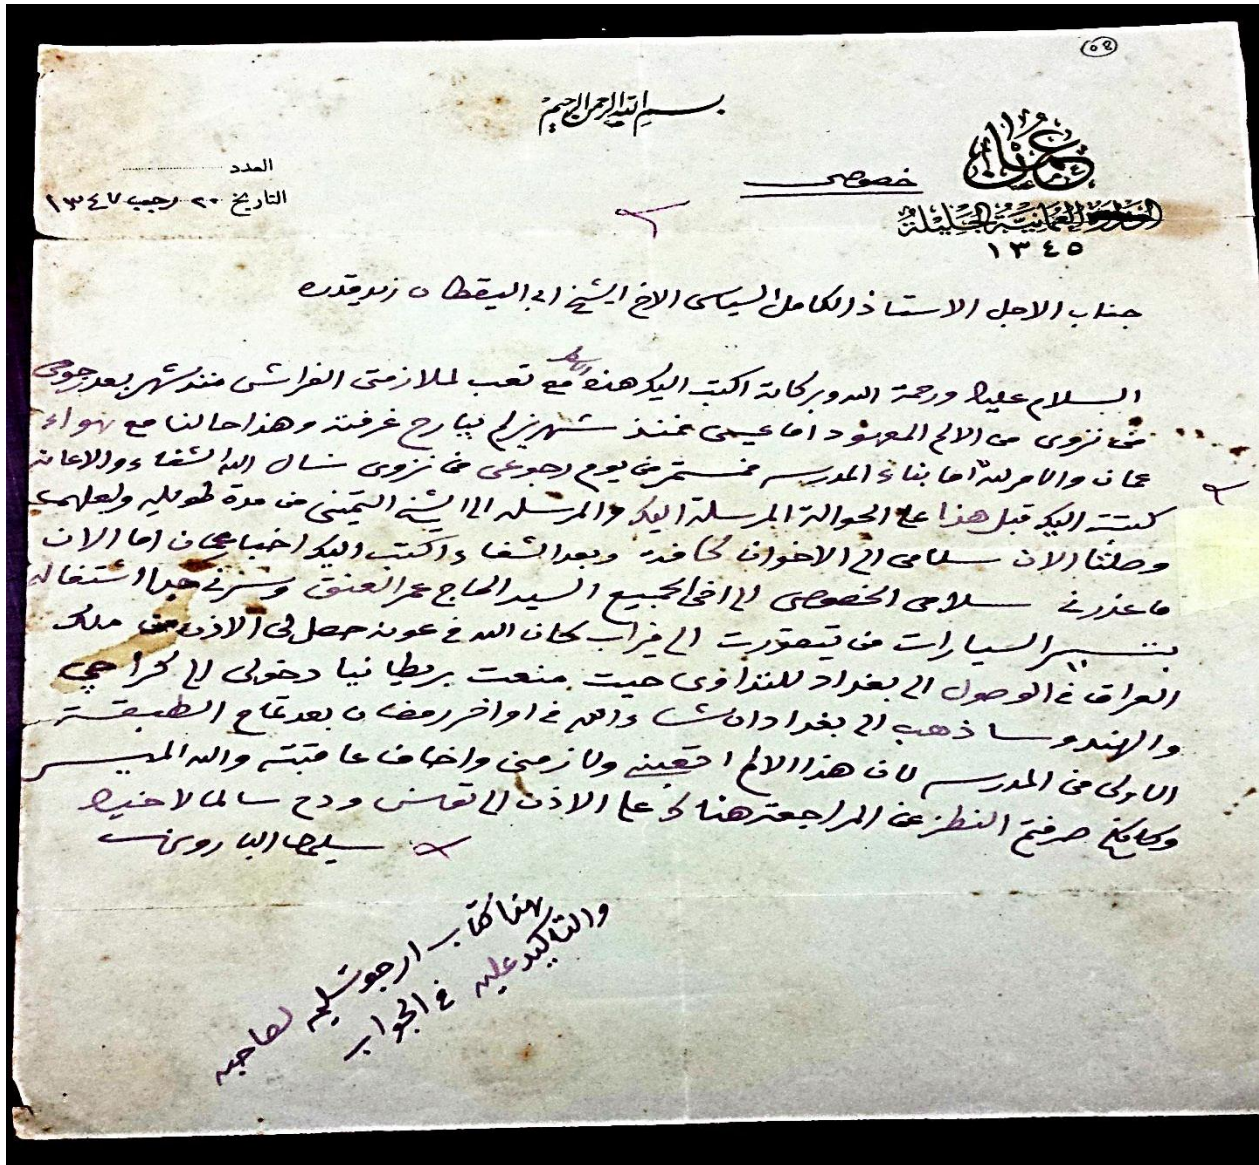 ٥٩
بسم الله الرحمن الرحيم
عمان
العمانية الجليلة
١٣٤٥
خصوصي
العدد
التاريخ ٢٠ رجب ١٣٤٧
جناب الاجل الاستاذ الكامل السياسي الاخ الشيخ ابي اليقظان زيد قدره
السلام عليكم ورحمة الله وبركاته اكتب اليك هذه مع تعب لملازمتي الفراش منذ شهر بعد رجوعي
من نزوى من الالم المعهود اما عيسى فمنذ شهرين لم يبارح غرفته وهذا حالنا مع هواء
عمان والامر لله اما بناء المدرسه فمستمر من يوم رجوعي من نزوى نسال الله الشفاء والاعانه
كتبت اليك قبل هذا على الحوالة المرسلة اليك والمرسله الى الشيخ الثميني من مدة طويله ولعلها
وصلت الان سلامي الى الاخوان كافة وبعد الشفاء اكتب اليك اخبار عمان اما الان
فاعذرني سلامي الخصوصي الى اخي الجميع السيد الحاج عمر العنق وسرني جدا اشتغاله
السيارات من تيقورت الى ميزاب كان الله في عونه حصل لي الاذن من ملك
العراق في الوصول الى بغداد للتداوى حيث منعت بريطانيا دخولي الى كراچي
والهند وساذهب الى بغداد ان شاء الله في اواخر رمضان بعد تمام الطبقة
الاولى من المدرسه لان هذا الالم اتعبني ولازمني واخاف عاقبته والله الميسر
صرفتم النظر عن المراجعة هناك على الاذن الى تونس ودم سالما لاخيك
سليمان الباروني
بهذا كتاب ارجو تسليمه لصاحبه
والتاكيد عليه في الجواب